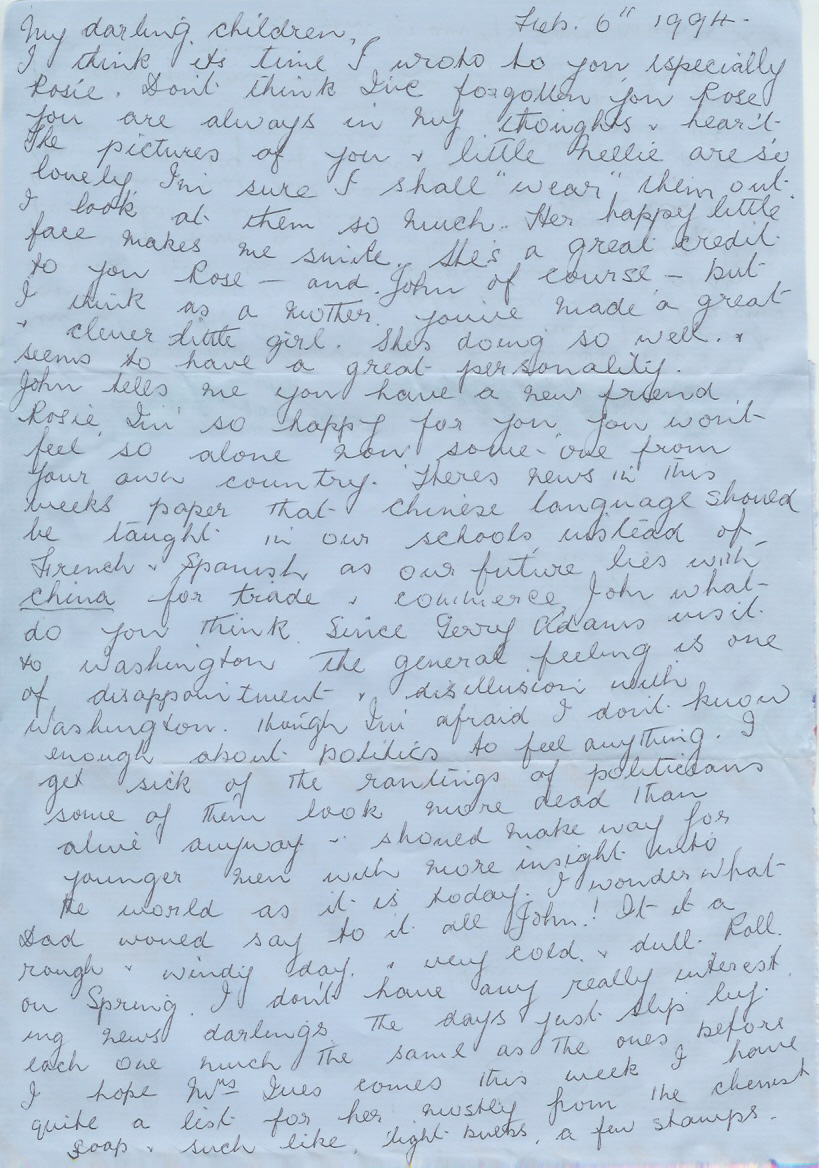 Feb. 6" 1994.
My darling children,
I think its time I wrote to you especially
Rosie. Dont think I've forgotten you Rose
you are always in my thoughts & heart.
The pictures of you & little Nellie are so
lovely, I'm sure I shall "wear" them out.
I look at them so much. Her happy little
face makes me smile. She's a great credit
to you Rose – and John of course – but
I think as a mother you've made a great
& clever little girl. Shes doing so well. &
seems to have a great personality.
John tells me you have a new friend
Rosie, I'm so happy for you, you wont
feel so alone now some-one from
your own country. Theres news in this
weeks paper that chinese language should
be taught in our schools instead of
French & Spanish as our future lies with
China for trade & commerce, John what
do you think. Since Gerry Adams visit
to Washington the general feeling is one
of disappointment & disillusion with
Washington. Though I'm afraid I dont know
enough about politics to feel anything. I
get sick of the rantings of politicians
some of them look more dead than
alive anyway & should make way for
younger men with more insight into
the world as it is today. I wonder what
Dad would say to it all John! It it a
rough & windy day, & very cold & dull. Roll
on Spring. I don't have any really interest
ing news darlings the days just slip by.
each one much the same as the ones before
I hope Mrs Ives comes this week I have
quite a list for her mostly from the chemist
soap & such like, light bulbs, a few stamps.